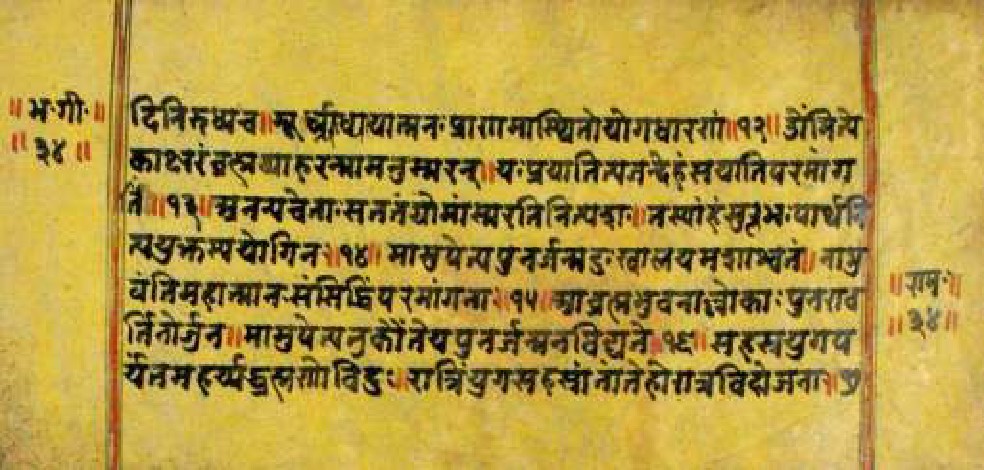 ॥भ॰गी॰॥
॥३४॥
दिनिरुध्यच॥मूर्ध्न्याधायात्मनःप्राणमास्थितोयोगधारणां॥१२॥ॐमित्ये
काक्षरंब्रह्मव्याहरन्मामनुस्मरन्॥यःप्रयातित्यजन्देहंसयातिपरमांग
तिं॥१३॥अनन्यचेताःसततंयोमांस्मरतिनित्यशः॥तस्याहंसुलभःपार्थनि
त्ययुक्तस्ययोगिनः॥१४॥मामुपेत्यपुनर्जन्मदुःखालयमशाश्वतं॥नाप्नु
वंतिमहात्मानःसंसिद्धिंपरमांगताः॥१५॥आब्रह्मभुवनाल्लोकाःपुनराव
र्तिनोर्जुन॥मामुपेत्यतुकौंतेयपुनर्जन्मनविद्यते॥१६॥सहस्रयुगप
र्यंतमहर्यद्ब्रह्मणोविदुः॥रात्रिंयुगसहस्रांतांतेहोरात्रविदोजनाः॥
॥रामः॥
॥३४॥